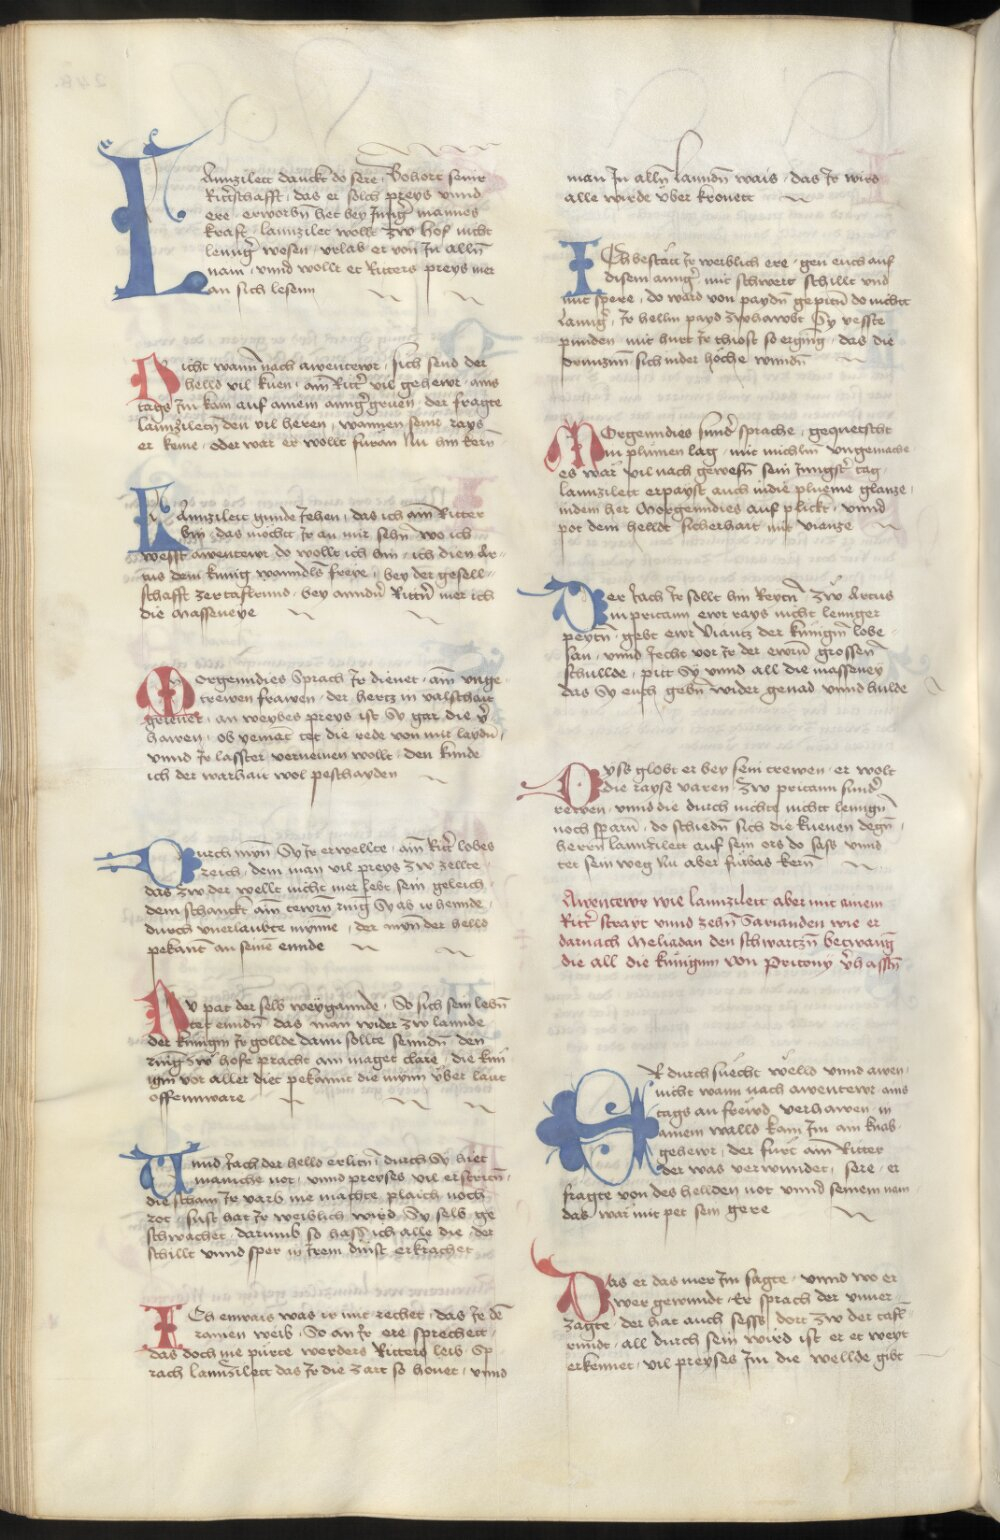 Lannzilett danckt do sere · Bohort seinr
Ritt̄schafft · das er solch preys vnnd
ere · erworbn̄ het bey Junḡ mannes
krafft · lannzilet wollt zw hof nicht
lennḡ wesen · vrlab er von Jn alln̄
nam · vnnd wollt et Ritters preys mer
an sich lesenn
Nicht wann nach awentewr · sich send der
helld vil kuen · am Ritt̄ vil gehewr · ains
tags Jm kam auf ainem annḡ gruen · der fragte
lannziletn̄ den vil heren · wannen seine rays
er keme · oder war er wollt furan Nu hin kern̄
Lannzilett gunde Jehen · das ich am Ritter
bin · das möcht Jr an mir sehn̄ · wo ich
wesst awentewr do wollt ich hin · ich dien Ar-
tus dem künig wanndls freye · bey der gesell-
schafft zertaflrund · bey anndn̄ Rittn̄ mer ich
die Masseneye
Morgenndies Sprach Jr dienet · am vnge-
trewen frawen · der hertz in valschait
grienet · an weybes preys ist Sy gar die v̄
hawen · ob yemēt tet die rede von mir laydn̄ ·
vnnd Jr lasster verneinen wollt · den kunde
ich der warhait wol peschayden
Durch myn̄ Sy Jr erwellte · am Ritt̄ lobes
reich · dem man vil preys zw zellte ·
das zw der wellt nicht mer lebt sein geleich ·
dem schanckt am tewrn̄ ring Sy ab ir hennde ·
durch vnerlaubte mynne · der myn̄ der helld
pekannt an seine ennde
Nv pat der selb weygannde · So sich sein lebn̄
tet enndn̄ das man wider zw lannde
der künigin Jr gollde dann sollte senndn̄ den
ring zw hofe pracht am maget clare · die kün
igin vor aller diet pekannt die mynn über laut
offennware
Vnnd Jach der helld erlitn̄ durch Sy hiet
maniche not · vnnd preyses vil erstritn̄ ·
die scham Jr varb nie machte plaich noch
rot · sust hat Jr weiblich wird Sy selb ge
schwachet · darumb so hass ich alle die · der
schillt vnnd sper in Jrem dinst erkrachet
Ich enwais was ir mit rechet · das Jr dē
rainen weib · So an Jr ere sprechett ·
das doch nie pürte werders Ritters leib · Sp
rach lannzilett das Jr die zart so honet · vnnd
man Jn alln̄ lanndn̄ wais · das Jr wird
alle wirde über kronett
Ich bestätt Jr weiblich ere · gen euch auf
disem annḡ · mit schwert schillt vnd
mit spere · do ward von paydn̄ gepitn̄ do nichtt
lannḡ · Jr hellm payd zwhawbt Sy vesste
punden · mit hurt Jr thiost so erging · das die
drunzunn sich inder höche wundn̄
Morgenndies sund̄ sprache · gequetscht
in plumen lag · mit michlm̄ vngemache ·
es war vil nach gewesn̄ sein Jungst̄ tag ·
lannzilett erpayst auch indie plueme glanze ·
indem her Morgenndies auf plickt · vnnd
pot dem helldt sicherhait mit vianze
Der Jach Jr sollt hin Reytn̄ · zw Artus
in pritann ewr rays nicht lennger
peytn̄ · gebt ewr Viantz der künigin̄ lobe-
san · vnnd Jecht vor Jr der ewrn̄ grossen
schullde · pitt Sy vnnd all die massenney
das Sy euch gebn̄ wider genad vnnd hulde
Dyss globt er bey sein trewen · er wolt
die rayse varen zw pritann sund̄
rewen · vnnd die durch nichte nichtt lenngn̄
noch sparn̄ · do schiedn̄ sich die kuenen degn̄ ·
herrn lanndzilett auf sein ors do sass vnnd
tet sein weg Nu aber fürbas kern̄
Awentewr wie lannzilett aber mit ainem
Ritt̄ strayt vnnd zehn̄ Sarianden wie er
darnach Meliadan den schwartzn̄ betwang
die all die küniginn von Pritony v̄hassn̄
ER durchsuecht welld vnnd awen ·
nicht wann nach awentewr ains
tags an frewd verhawen · in
ainem walld kam Jm am knab
gehewr · der furt am Ritter
der was verwundet · sere · er
fragte von des hellden not vnnd seinem nem
das war mit pet sein gere
Das er das mer Jm sagte · vnnd wo er
wer gewundt · Er sprach der vnuer-
zagte · der hat auch sesss dort zw der tafl
rundt · all durch sein wird ist er et weyt
erkennet · vil preyses Jm die wellde gibt